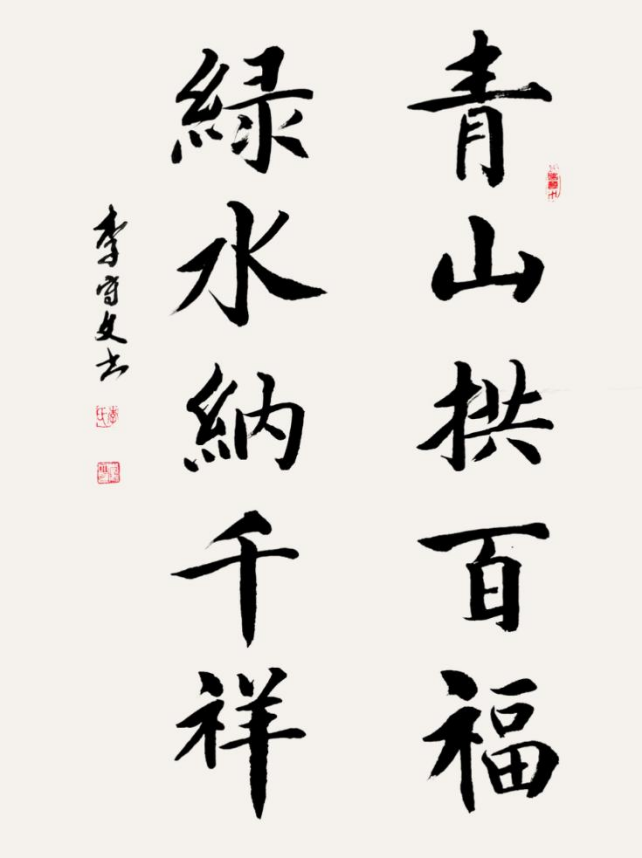 青山拱百福
緑水納千祥
李守文书